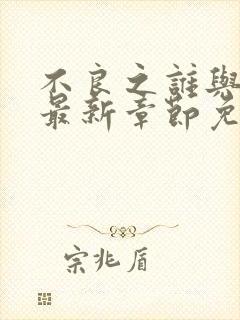 不良之誰與
最新章節免
宗兆盾